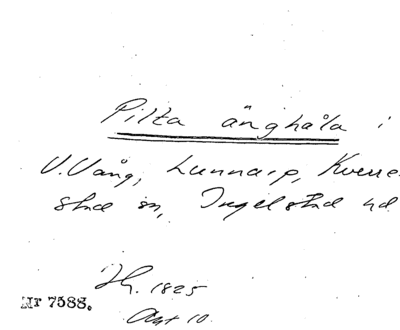 Pilta änghåla i
V. Vång, Lunnarp, Kverre-
stad sn, Ingelstad hd
Jh. 1825
Akt 10
Nr 7588.